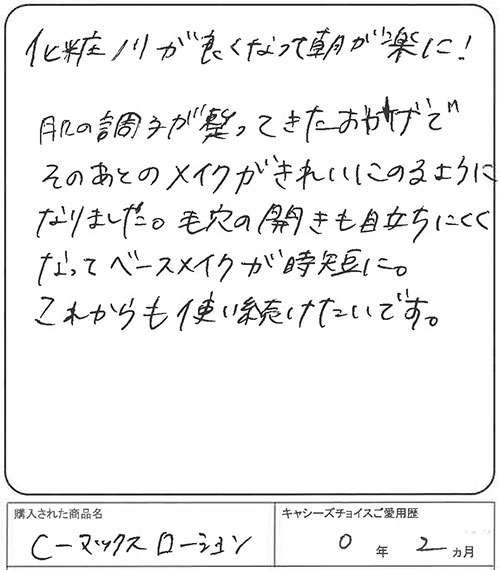 化粧ノリが良くなって朝が楽に!
肌の調子が整ってきたおかげで
そのあとのメイクがきれいにのるように
なりました。毛穴の開きも目立ちにくく
なってベースメイクが時短に。
これからも使い続けたいです。
購入された商品名
キャシーズチョイスご愛用歴
C-マックス ローション
0 年 2 ヵ月